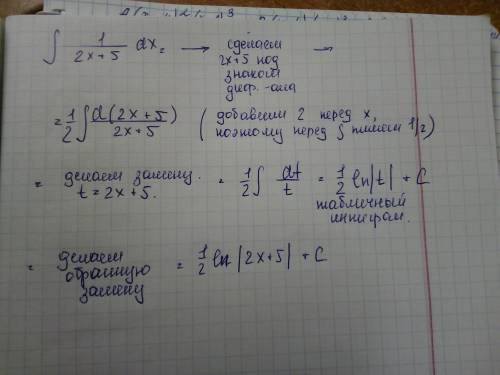 ∫ 1/(2x+5) dx = → сделаем →
2x+5 под
знаком
диф-ала
= 1/2 ∫ d(2x+5)/(2x+5) (добавили 2 перед x,
поэтому перед ∫ пишем 1/2)
= делаем замену. = 1/2 ∫ dt/t = 1/2 ln|t| + C
t = 2x+5. табличный
интеграл.
= делаем = 1/2 ln |2x+5| + C
обратную
замену